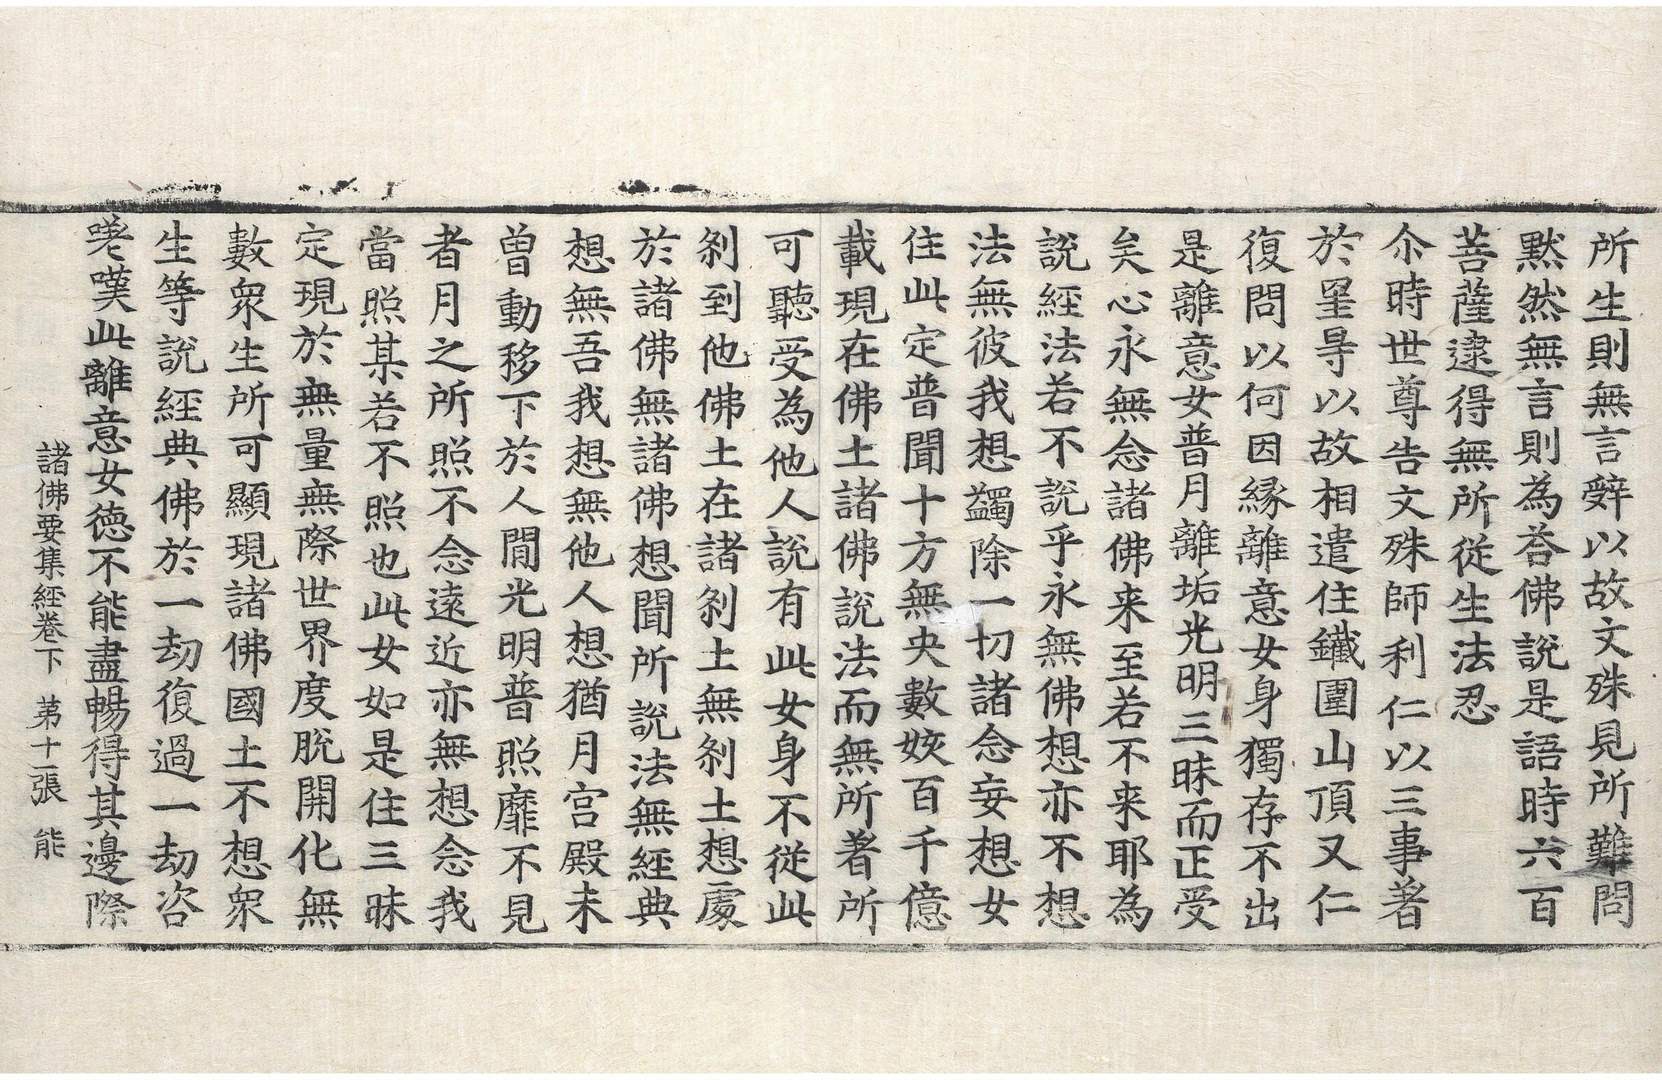 所生則無言辤以故文殊見所難問
默然無言則為荅佛說是語時六百
菩薩逮得無所從生法忍
尒時世尊告文殊師利仁以三事著
於罣㝵以故相遣住鐵圍山頂又仁
復問以何因緣離意女身獨存不出
是離意女普月離垢光明三昧而正受
矣心永無念諸佛来至若不来耶為
說經法若不說乎永無佛想亦不想
法無彼我想蠲除一切諸念妄想女
住此定普聞十方無央數姟百千億
載現在佛土諸佛說法而無所著所
可聽受為他人說有此女身不從此
剎到他佛土在諸剎土無剎土想處
於諸佛無諸佛想聞所說法無經典
想無吾我想無他人想猶月宮殿未
曽動移下於人間光明普照靡不見
者月之所照不念遠近亦無想念我
當照某若不照也此女如是住三昧
定現於無量無際世界度脫開化無
數衆生所可顯現諸佛國土不想衆
生等說經典佛於一劫復過一劫咨
嗟嘆此離意女德不能盡暢得其邊際
諸佛要集經卷下 第十一張 能